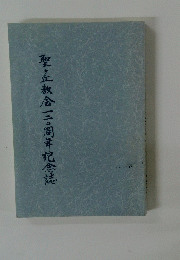 聖ヶ丘教会一二〇周年記念誌